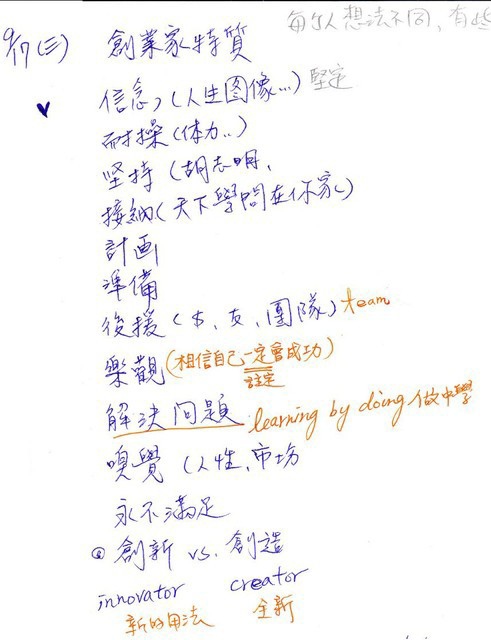 每个人想法不同,有些
9/17(三) 創業家特質
信念,(人生图像...) 堅定
耐操(体力..)
坚持(胡志明,
接納(天下學問在你家)
計画
準備
後援( 、友、團隊) team
樂觀(相信自己一定會成功)
註定
解決问題 learning by doing 做中學
嗅覺(人性,市场
永不滿足
創新 vs. 創造
innovator creator
新的用法 全新